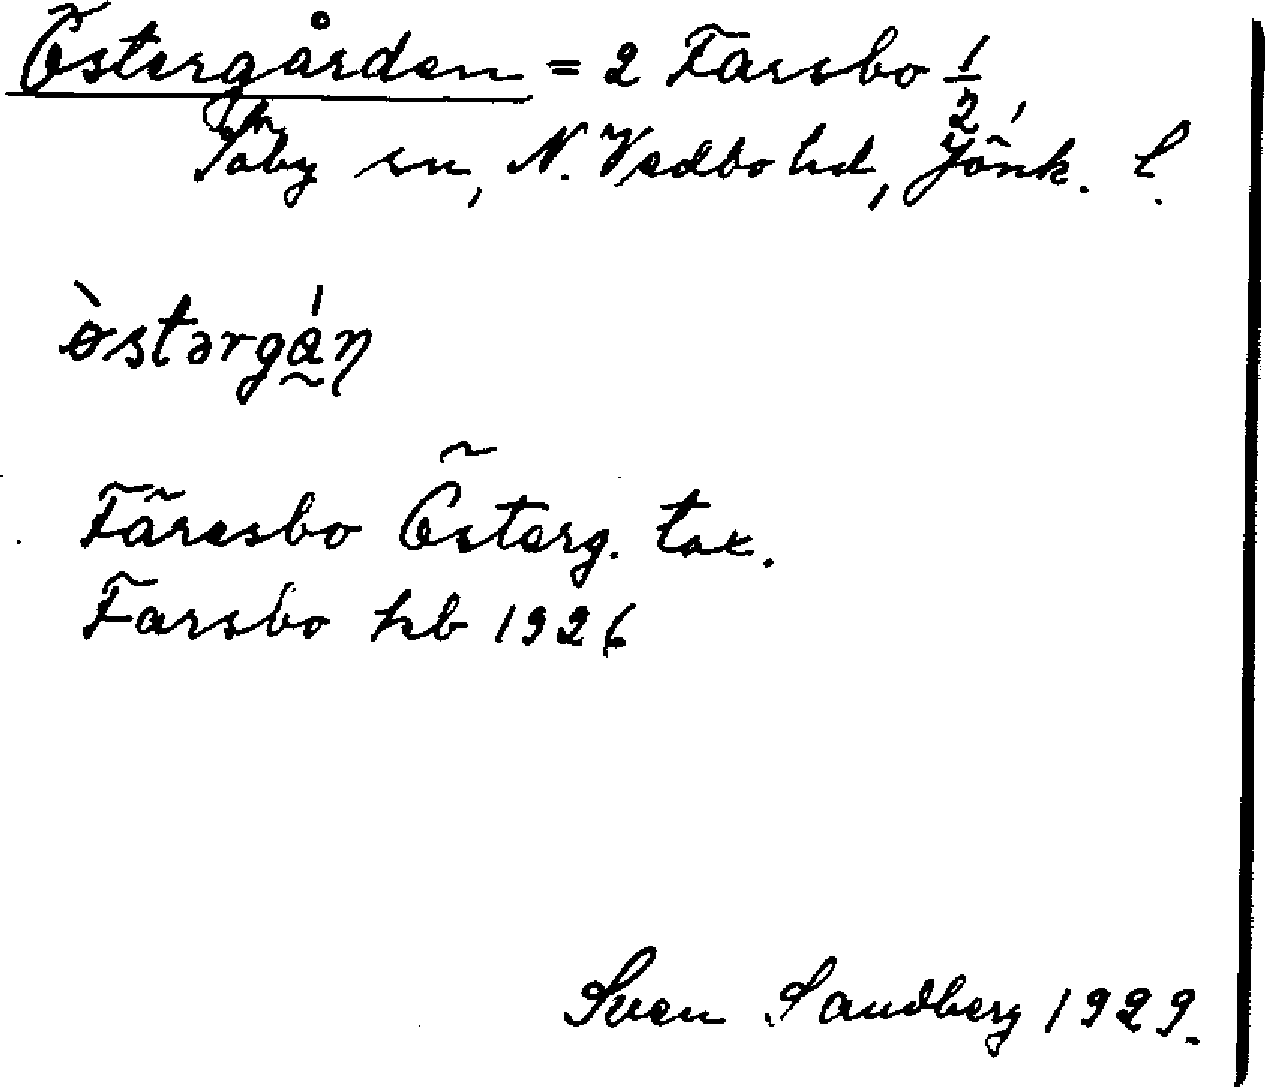 Östergården = 2 Farsbo 1/2
Säby sn, N. Vedbo hd, Jönk. l.
òstərgá̰ṇ
Färesbo Österg. tax.
Farsbo kb 1926
Sven Sandberg 1929.